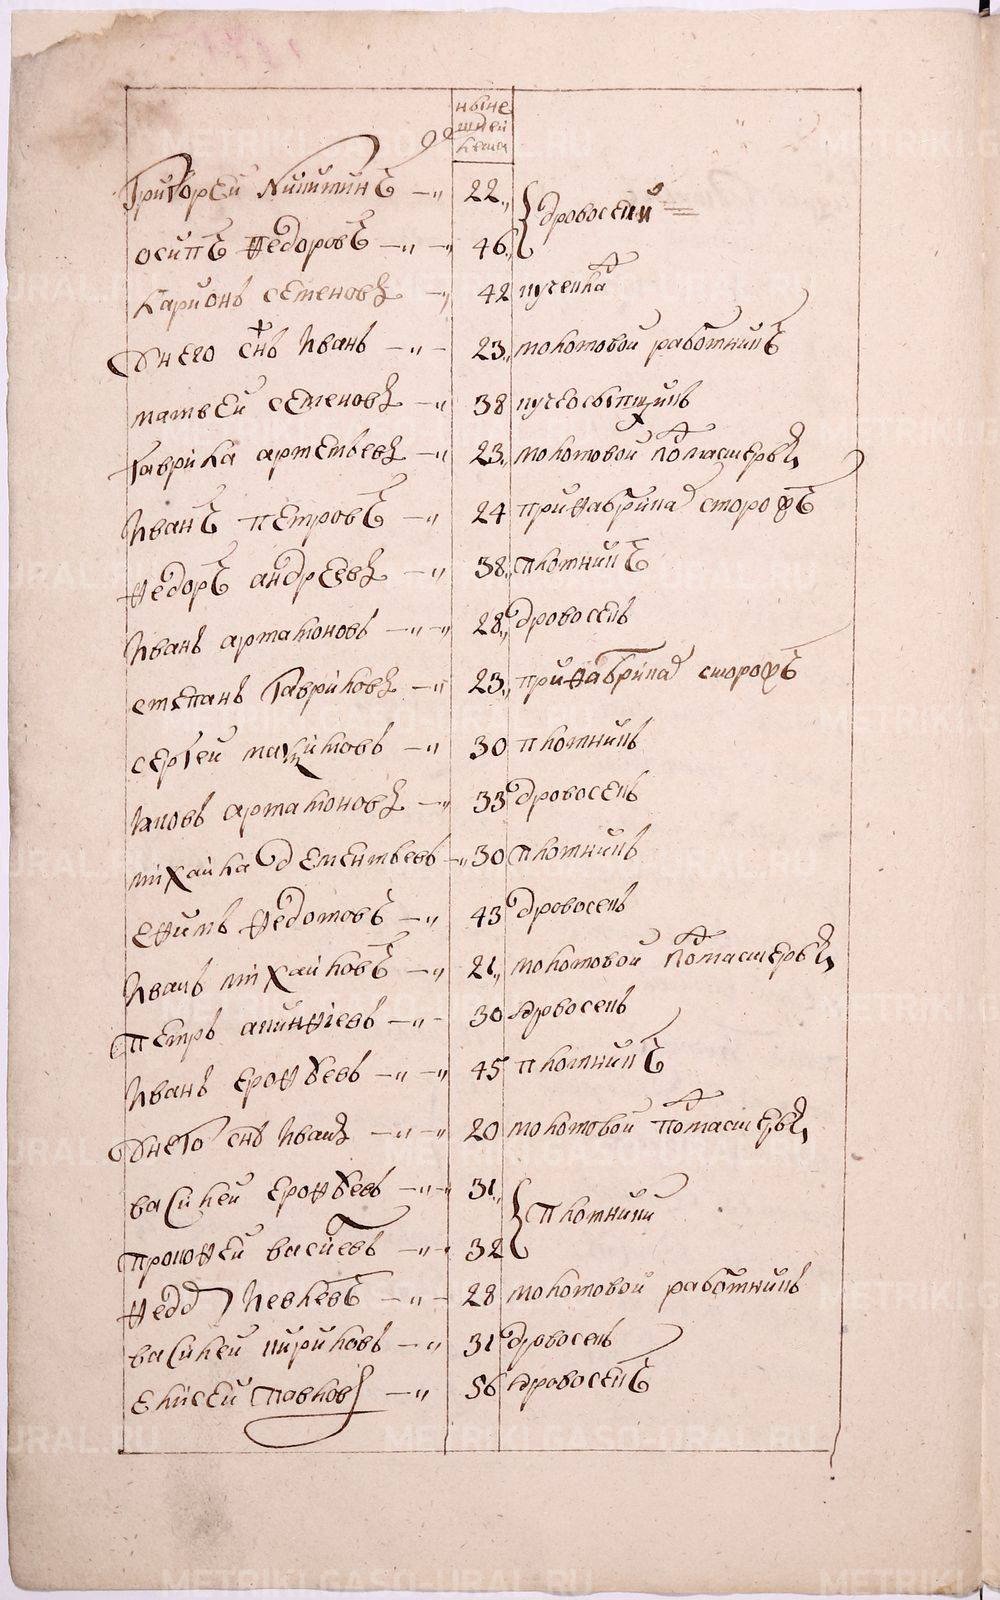 ныне
шней
Григорей Никитинъ 22 дровосеки
осипъ Федоровъ 46
Ларионъ семеновъ 42
У него снъ Иванъ 23 молотовой работникъ
матвей семеновъ 38
Гаврила артемьевъ 23 молотовой подмастерья
Иванъ петровъ 24 при фабрике сторожъ
Федоръ андреевъ 38 плотникъ
Иванъ артамоновъ 28 дровосекъ
степанъ Гавриловъ 23 при фабрике сторожъ
сергей максимовъ 30 плотникъ
Яковъ артамоновъ 33 дровосекъ
михайла дементьевъ 30 плотникъ
ефимъ Федотовъ 43 дровосекъ
Иванъ михайловъ 21 молотовой подмастерья
петръ 30 дровосекъ
Иванъ ерофеевъ 45 плотникъ
У него снъ Иванъ 20 молотовой подмастерья
василей ерофеевъ 31 плотники
прокофей васиевъ 32
28 молотовой работникъ
василей кириловъ 31 дровосекъ
елисей павловъ 56 дровосекъ
METRIKI.GASO-URAL.RU